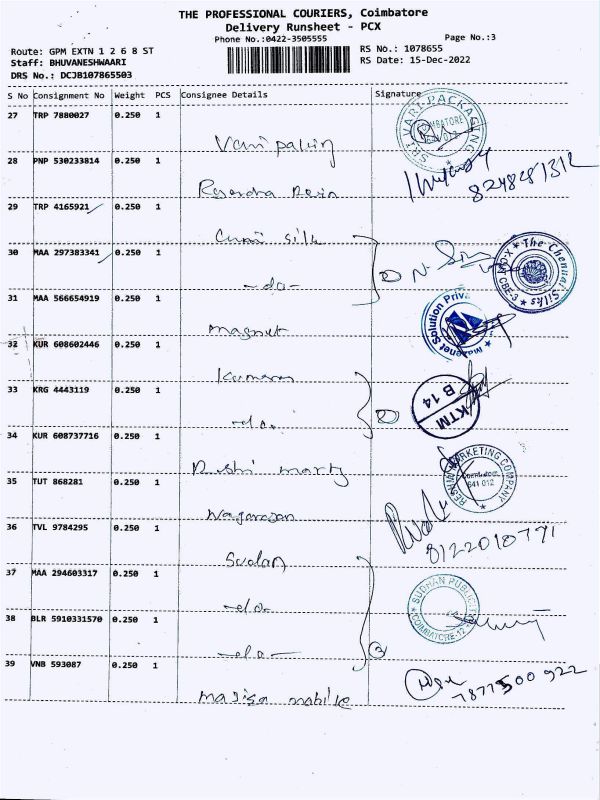 THE PROFESSIONAL COURIERS, Coimbatore
Delivery Runsheet - PCX
Phone No.:0422-3505555
Page No.:3
Route: GPM EXTN 1 2 6 8 ST
RS No.: 1078655
Staff: BHUVANESHWAARI
RS Date: 15-Dec-2022
DRS No.: DCJB107865503
S No Consignment No Weight PCS Consignee Details Signature
27 TRP 7880027 0.250 1
SRI VARI PACKAGING COIMBATORE 641 012
28 PNP 530233814 0.250 1
Rajendra
8248281312
29 TRP 4165921 0.250 1
silk
30 MAA 297383341 0.250 1
-do-
The Chennai Silks CBE-3
31 MAA 566654919 0.250 1
magnet
Magnet Solution Priva
32 KUR 608602446 0.250 1
Kumaran
33 KRG 4443119 0.250 1
-do-
KTM
B 14
34 KUR 608737716 0.250 1
MARKETING COMPANY Coimbatore 641 012
35 TUT 868281 0.250 1
Nagarajan
36 TVL 9784295 0.250 1
8122010791
Sudan
37 MAA 294603317 0.250 1
-do-
SUDHAN PUBLICITY COIMBATORE-12
38 BLR 5910331570 0.250 1
-do-
39 VNB 593087 0.250 1
7877500922